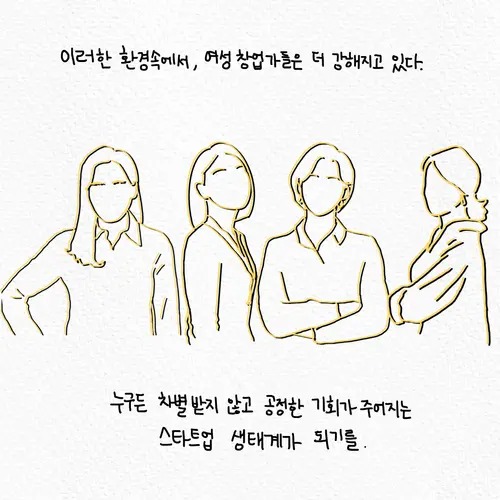 이러한 환경속에서, 여성 창업가들은 더 강해지고 있다.
누구든 차별받지 않고 공정한 기회가 주어지는
스타트업 생태계가 되기를.